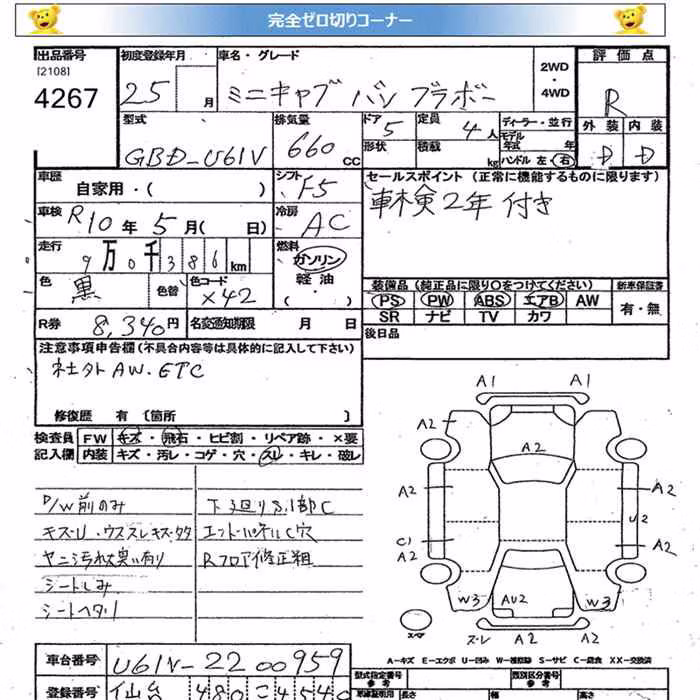 完全ゼロ切りコーナー
出品番号 初度登録年月 車名・グレード 2WD ・ 4WD 評価点
[2108]
4267 25 月 ミニキャブ バン ブラボー R
型式 排気量 ドア 定員 ディーラー・並行 外装 内装
GBD-U61V 660 cc 5 4人 モデル年式 年 D D
形状 積載 kg ハンドル 左・右
車歴 自家用・( ) シフト F5 セールスポイント(正常に機能するものに限ります)
車検 R10年 5月( 日) 冷房 AC 車検2年付き
走行 9万0千386km 燃料 ガソリン・軽油・( )
色 黒 色替 色コード X42
装備品(純正品に限り○をつけてください) 新車保証書
PS PW ABS エアB AW 有・無
SR ナビ TV カワ
R券 8,340円 名変通知期限 月 日 後日品
注意事項申告欄(不具合内容等は具体的に記入して下さい)
社外AW.ETC
修復歴 有〔箇所 〕
検査員記入欄 FW キズ・飛石・ヒビ割・リペア跡・×要
内装 キズ・汚レ・コゲ・穴・スレ・キレ・破レ
P/W前のみ 下廻りS1部C
キズ・U・ウススレキズ多数 エンドパネルC穴
ヤニ汚れ大臭い有り Rフロア修正粗
シートしみ
シートヘタリ
A1 A1
A2 A2 A2
A2 A2
U2
C1 A2 A2
W3 AU2 W3
スペア スレ A2 A2
A-キズ E-エクボ U-凹み W-補修跡 S-サビ C-腐食 XX-交換済
車台番号 U61V-2200959
登録番号 仙台 480 こ 4540
型式指定番号 参考 類別区分番号 参考
車検証利用 参考 長さ 高さ